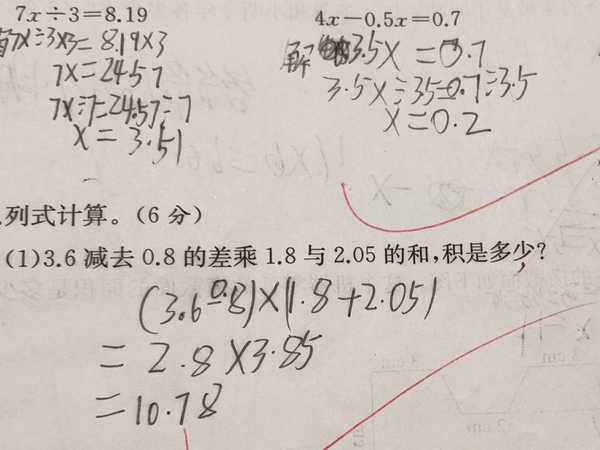 7x÷3=8.19
解7x÷3×3=8.19×3
7x=24.57
7x÷7=24.57÷7
x=3.51
4x-0.5x=0.7
解 3.5x=0.7
3.5x÷35=0.7÷3.5
x=0.2
.列式计算。(6分)
(1)3.6减去0.8的差乘1.8与2.05的和,积是多少?
(3.6-0.8)×(1.8+2.05)
=2.8×3.85
=10.78